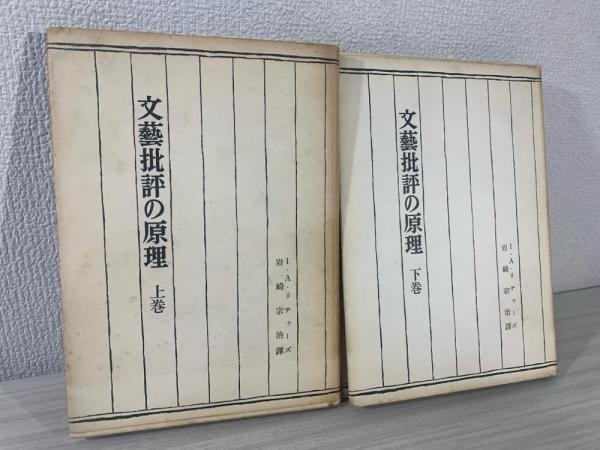 文藝批評の原理 上巻
I・A・リチャーズ
岩崎宗治譯
文藝批評の原理 下巻
I・A・リチャーズ
岩崎宗治譯